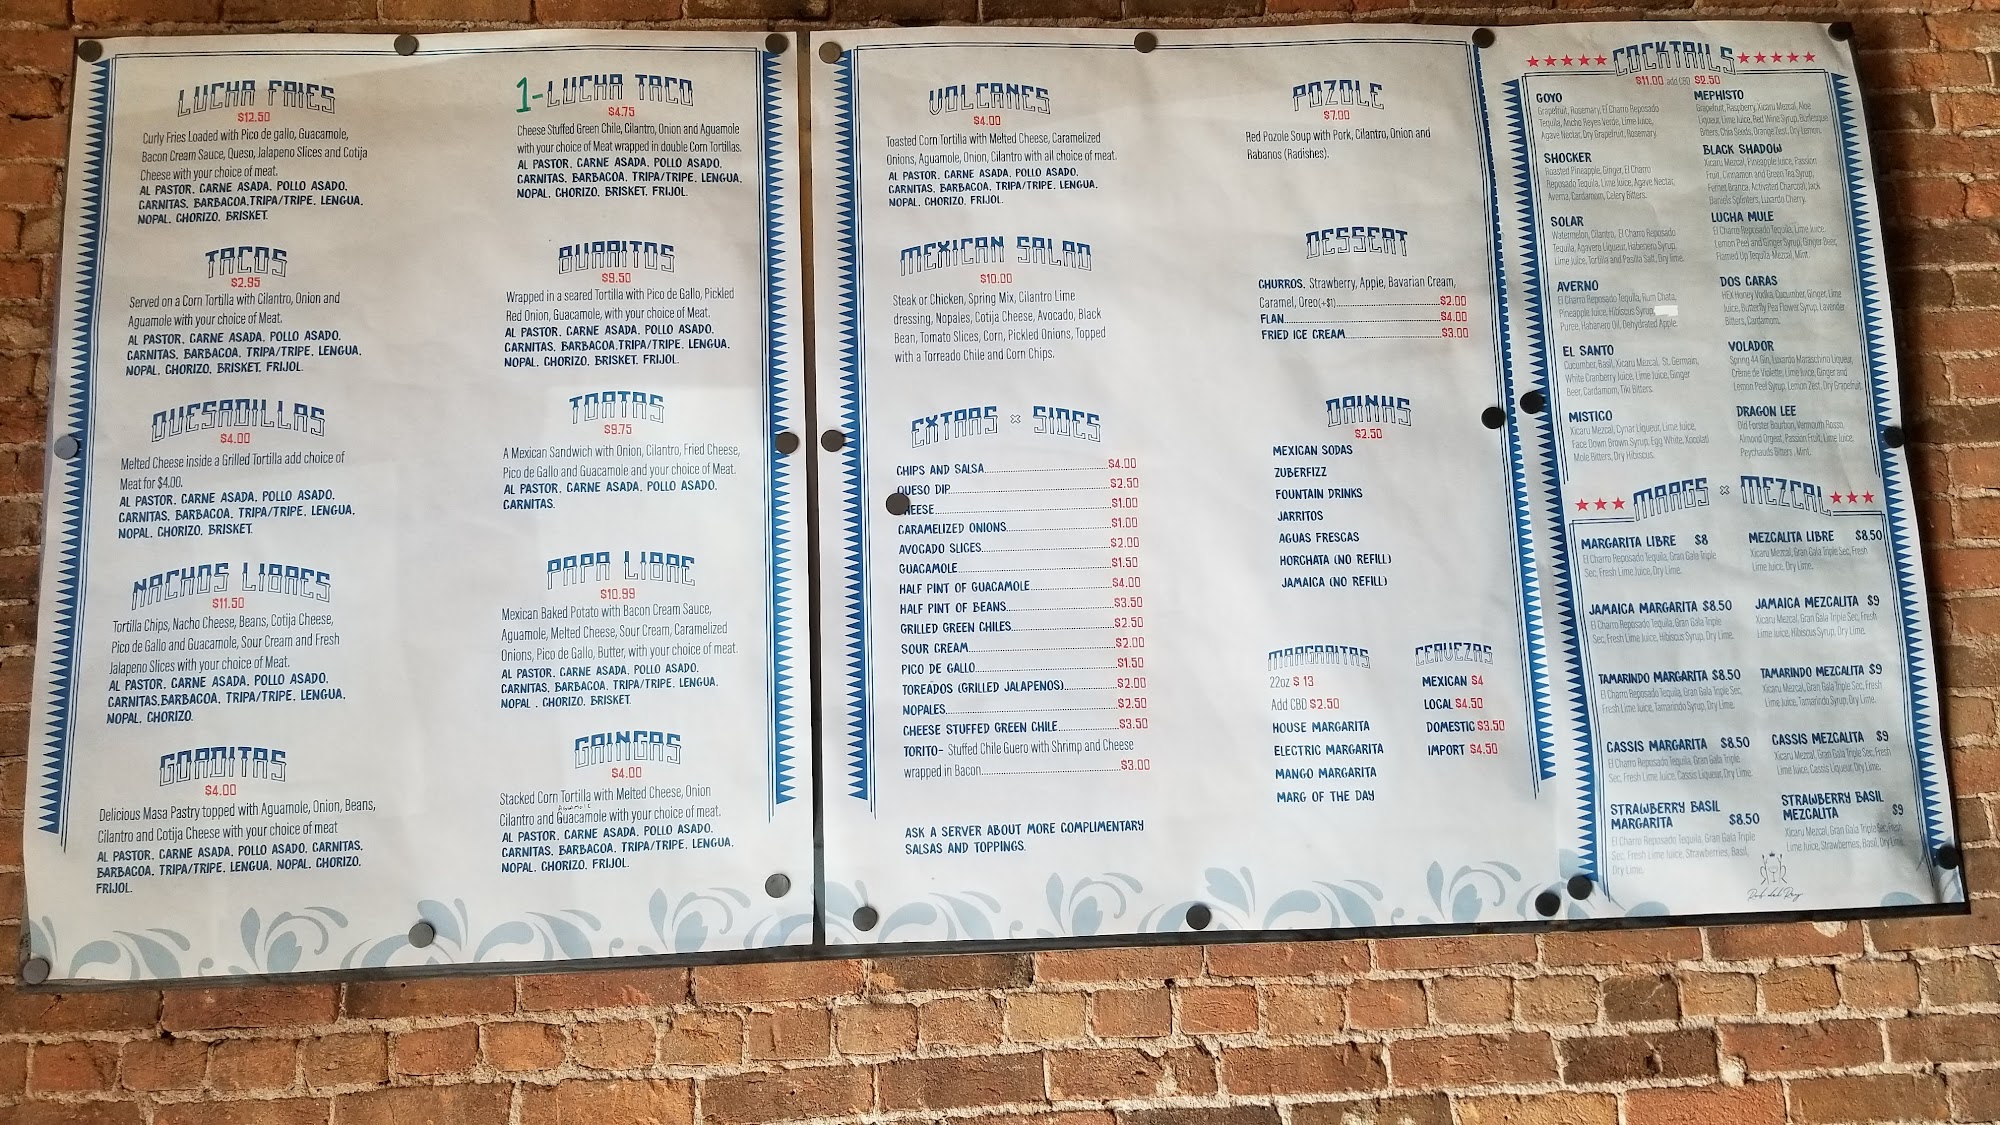 LUCHA FRIES
$12.50
Curly Fries Loaded with Pico de gallo, Guacamole,
Bacon Cream Sauce, Queso, Jalapeno Slices and Cotija
Cheese with your choice of meat.
AL PASTOR, CARNE ASADA, POLLO ASADO,
CARNITAS, BARBACOA,TRIPA/TRIPE, LENGUA,
NOPAL, CHORIZO, BRISKET.
TACOS
$2.95
Served on a Corn Tortilla with Cilantro, Onion and
Aguamole with your choice of Meat.
AL PASTOR, CARNE ASADA, POLLO ASADO,
CARNITAS, BARBACOA, TRIPA/TRIPE, LENGUA,
NOPAL, CHORIZO, BRISKET, FRIJOL.
QUESADILLAS
$4.00
Melted Cheese inside a Grilled Tortilla add choice of
Meat for $4.00.
AL PASTOR, CARNE ASADA, POLLO ASADO,
CARNITAS, BARBACOA, TRIPA/TRIPE, LENGUA,
NOPAL, CHORIZO, BRISKET.
NACHOS LIBRES
$11.50
Tortilla Chips, Nacho Cheese, Beans, Cotija Cheese,
Pico de Gallo and Guacamole, Sour Cream and Fresh
Jalapeno Slices with your choice of Meat.
AL PASTOR, CARNE ASADA, POLLO ASADO,
CARNITAS,BARBACOA, TRIPA/TRIPE, LENGUA,
NOPAL, CHORIZO.
GORDITAS
$4.00
Delicious Masa Pastry topped with Aguamole, Onion, Beans,
Cilantro and Cotija Cheese with your choice of meat
AL PASTOR, CARNE ASADA, POLLO ASADO, CARNITAS,
BARBACOA, TRIPA/TRIPE, LENGUA, NOPAL, CHORIZO,
FRIJOL.
1-LUCHA TACO
$4.75
Cheese Stuffed Green Chile, Cilantro, Onion and Aguamole
with your choice of Meat wrapped in double Corn Tortillas.
AL PASTOR, CARNE ASADA, POLLO ASADO,
CARNITAS, BARBACOA, TRIPA/TRIPE, LENGUA,
NOPAL, CHORIZO, BRISKET, FRIJOL.
BURRITOS
$9.50
Wrapped in a seared Tortilla with Pico de Gallo, Pickled
Red Onion, Guacamole, with your choice of Meat.
AL PASTOR, CARNE ASADA, POLLO ASADO,
CARNITAS, BARBACOA,TRIPA/TRIPE, LENGUA,
NOPAL, CHORIZO, BRISKET, FRIJOL.
TORTAS
$9.75
A Mexican Sandwich with Onion, Cilantro, Fried Cheese,
Pico de Gallo and Guacamole and your choice of Meat.
AL PASTOR, CARNE ASADA, POLLO ASADO,
CARNITAS.
PAPA LIBRE
$10.99
Mexican Baked Potato with Bacon Cream Sauce,
Aguamole, Melted Cheese, Sour Cream, Caramelized
Onions, Pico de Gallo, Butter, with your choice of meat.
AL PASTOR, CARNE ASADA, POLLO ASADO,
CARNITAS, BARBACOA, TRIPA/TRIPE, LENGUA,
NOPAL , CHORIZO, BRISKET.
GRINGAS
$4.00
Stacked Corn Tortilla with Melted Cheese, Onion
Cilantro and Guacamole with your choice of meat.
AL PASTOR, CARNE ASADA, POLLO ASADO,
CARNITAS, BARBACOA, TRIPA/TRIPE, LENGUA,
NOPAL, CHORIZO, FRIJOL.
VOLCANES
$4.00
Toasted Corn Tortilla with Melted Cheese, Caramelized
Onions, Aguamole, Onion, Cilantro with all choice of meat.
AL PASTOR, CARNE ASADA, POLLO ASADO,
CARNITAS, BARBACOA, TRIPA/TRIPE, LENGUA,
NOPAL, CHORIZO, FRIJOL.
MEXICAN SALAD
$10.00
Steak or Chicken, Spring Mix, Cilantro Lime
dressing, Nopales, Cotija Cheese, Avocado, Black
Bean, Tomato Slices, Corn, Pickled Onions, Topped
with a Torreado Chile and Corn Chips.
EXTRAS × SIDES
CHIPS AND SALSA $4.00
QUESO DIP $2.50
HEESE $1.00
CARAMELIZED ONIONS $1.00
AVOCADO SLICES $2.00
GUACAMOLE $1.50
HALF PINT OF GUACAMOLE $4.00
HALF PINT OF BEANS $3.50
GRILLED GREEN CHILES $2.50
SOUR CREAM $2.00
PICO DE GALLO $1.50
TOREADOS (GRILLED JALAPENOS) $2.00
NOPALES $2.50
CHEESE STUFFED GREEN CHILE $3.50
TORITO- Stuffed Chile Guero with Shrimp and Cheese
wrapped in Bacon $3.00
ASK A SERVER ABOUT MORE COMPLIMENTARY
SALSAS AND TOPPINGS.
POZOLE
$7.00
Red Pozole Soup with Pork, Cilantro, Onion and
Rabanos (Radishes).
DESSERT
CHURROS, Strawberry, Apple, Bavarian Cream,
Caramel, Oreo(+$1) $2.00
FLAN $4.00
FRIED ICE CREAM $3.00
DRINKS
$2.50
MEXICAN SODAS
ZUBERFIZZ
FOUNTAIN DRINKS
JARRITOS
AGUAS FRESCAS
HORCHATA (NO REFILL)
JAMAICA (NO REFILL)
MARGARITAS
22oz $ 13
Add CBD $2.50
HOUSE MARGARITA
ELECTRIC MARGARITA
MANGO MARGARITA
MARG OF THE DAY
CERVEZAS
MEXICAN $4
LOCAL $4.50
DOMESTIC $3.50
IMPORT $4.50
COCKTAILS
$11.00 add CBD $2.50
GOYO
Grapefruit, Rosemary, El Charro Reposado
Tequila, Ancho Reyes Verde, Lime Juice,
Agave Nectar, Dry Grapefruit, Rosemary.
SHOCKER
Roasted Pineapple, Ginger, El Charro
Reposado Tequila, Lime Juice, Agave Nectar,
Averna, Cardamom, Celery Bitters.
SOLAR
Watermelon, Cilantro, El Charro Reposado
Tequila, Agavero Liqueur, Habanero Syrup,
Lime Juice, Tortilla and Pasilla Salt, Dry lime.
AVERNO
El Charro Reposado Tequila, Rum Chata,
Pineapple Juice, Hibiscus Syrup,
Puree, Habanero Oil, Dehydrated Apple.
EL SANTO
Cucumber, Basil, Xicaru Mezcal, St. Germain,
White Cranberry Juice, Lime Juice, Ginger
Beer, Cardamom, Tiki Bitters.
MISTICO
Xicaru Mezcal, Cynar Liqueur, Lime Juice,
Face Down Brown Syrup, Egg White, Xocolatl
Mole Bitters, Dry Hibiscus.
MEPHISTO
Grapefruit, Raspberry, Xicaru Mezcal, Aloe
Liqueur, Lime Juice, Red Wine Syrup, Burlesque
Bitters, Chia Seeds, Orange Zest, Dry Lemon.
BLACK SHADOW
Xicaru Mezcal, Pineapple Juice, Passion
Fruit, Cinnamon and Green Tea Syrup,
Fernet Branca, Activated Charcoal, Jack
Daniels Splinters, Luxardo Cherry.
LUCHA MULE
El Charro Reposado Tequila, Lime Juice,
Lemon Peel and Ginger Syrup, Ginger Beer,
Flamed Up Tequila-Mezcal, Mint.
DOS CARAS
HEX Honey Vodka, Cucumber, Ginger, Lime
Juice, Butterfly Pea Flower Syrup, Lavender
Bitters, Cardamom.
VOLADOR
Spring 44 Gin, Luxardo Maraschino Liqueur,
Crème de Violette, Lime Juice, Ginger and
Lemon Peel Syrup, Lemon Zest, Dry Grapefruit.
DRAGON LEE
Old Forster Bourbon, Vermouth Rosso,
Almond Orgeat, Passion Fruit, Lime Juice,
Peychauds Bitters , Mint.
MARGS × MEZCAL
MARGARITA LIBRE $8
El Charro Reposado Tequila, Gran Gala Triple
Sec, Fresh Lime Juice, Dry Lime.
JAMAICA MARGARITA $8.50
El Charro Reposado Tequila, Gran Gala Triple
Sec, Fresh Lime Juice, Hibiscus Syrup, Dry Lime.
TAMARINDO MARGARITA $8.50
El Charro Reposado Tequila, Gran Gala Triple Sec,
Fresh Lime Juice, Tamarindo Syrup, Dry Lime.
CASSIS MARGARITA $8.50
El Charro Reposado Tequila, Gran Gala Triple
Sec, Fresh Lime Juice, Cassis Liqueur, Dry Lime.
STRAWBERRY BASIL
MARGARITA $8.50
El Charro Reposado Tequila, Gran Gala Triple
Sec, Fresh Lime Juice, Strawberries, Basil,
Dry Lime.
MEZCALITA LIBRE $8.50
Xicaru Mezcal, Gran Gala Triple Sec, Fresh
Lime Juice, Dry Lime.
JAMAICA MEZCALITA $9
Xicaru Mezcal, Gran Gala Triple Sec, Fresh
Lime Juice, Hibiscus Syrup, Dry Lime.
TAMARINDO MEZCALITA $9
Xicaru Mezcal, Gran Gala Triple Sec, Fresh
Lime Juice, Tamarindo Syrup, Dry Lime.
CASSIS MEZCALITA $9
Xicaru Mezcal, Gran Gala Triple Sec, Fresh
Lime Juice, Cassis Liqueur, Dry Lime.
STRAWBERRY BASIL
MEZCALITA $9
Xicaru Mezcal, Gran Gala Triple Sec, Fresh
Lime Juice, Strawberries, Basil, Dry Lime.